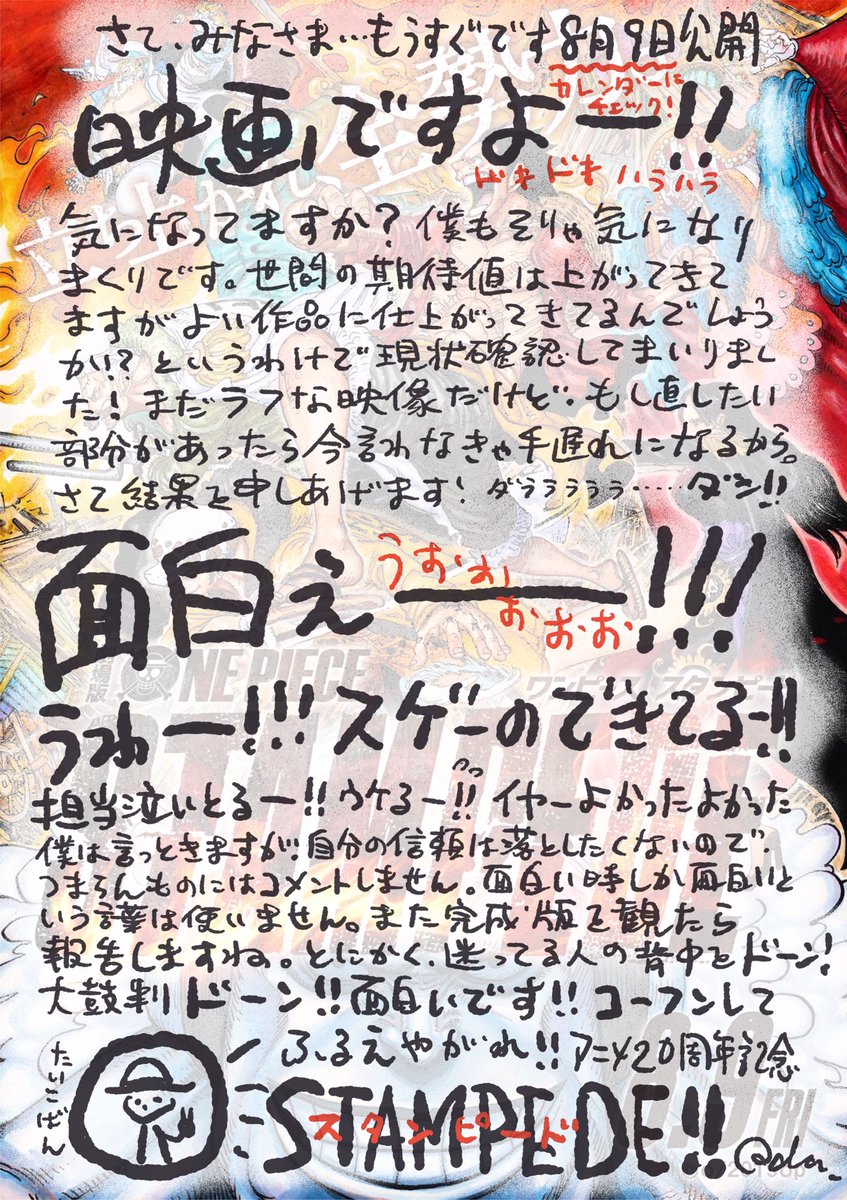 さて、みなさま…もうすぐです8月9日公開
カレンダーに
チェック!
映画ですよー!!
ドキドキ ハラハラ
気になってますか?僕もそりゃ気になり
まくりです。世間の期待値は上がってきて
ますがよい作品に仕上がってきてるんでしょう
かい?というわけで現状確認してまいりまし
た!まだラフな映像だけど、もし直したい
部分があったら今言わなきゃ手遅れになるから。
さて結果を申しあげます!ダララララ……ダン!!
面白ぇーー!!!
うおおおおお
劇場版 ONE PIECE
ワンピース スタンピード
うわー!!!スゲーのできてるー!!
担当泣いとるー!!ウケるー!!イヤーよかったよかった
僕は言っときますが、自分の信頼は落としたくないので、
つまらんものにはコメントしません。面白い時しか面白いと
いう言葉は使いません。また完成版を観たら
報告しますね。とにかく、迷ってる人の背中をドーン!
太鼓判ドーン!!面白いです!!コーフンして
ふるえやがれ!!アニメ20周年記念
たいこばん
STAMPEDE!!
スタンピード
8.9 FRI